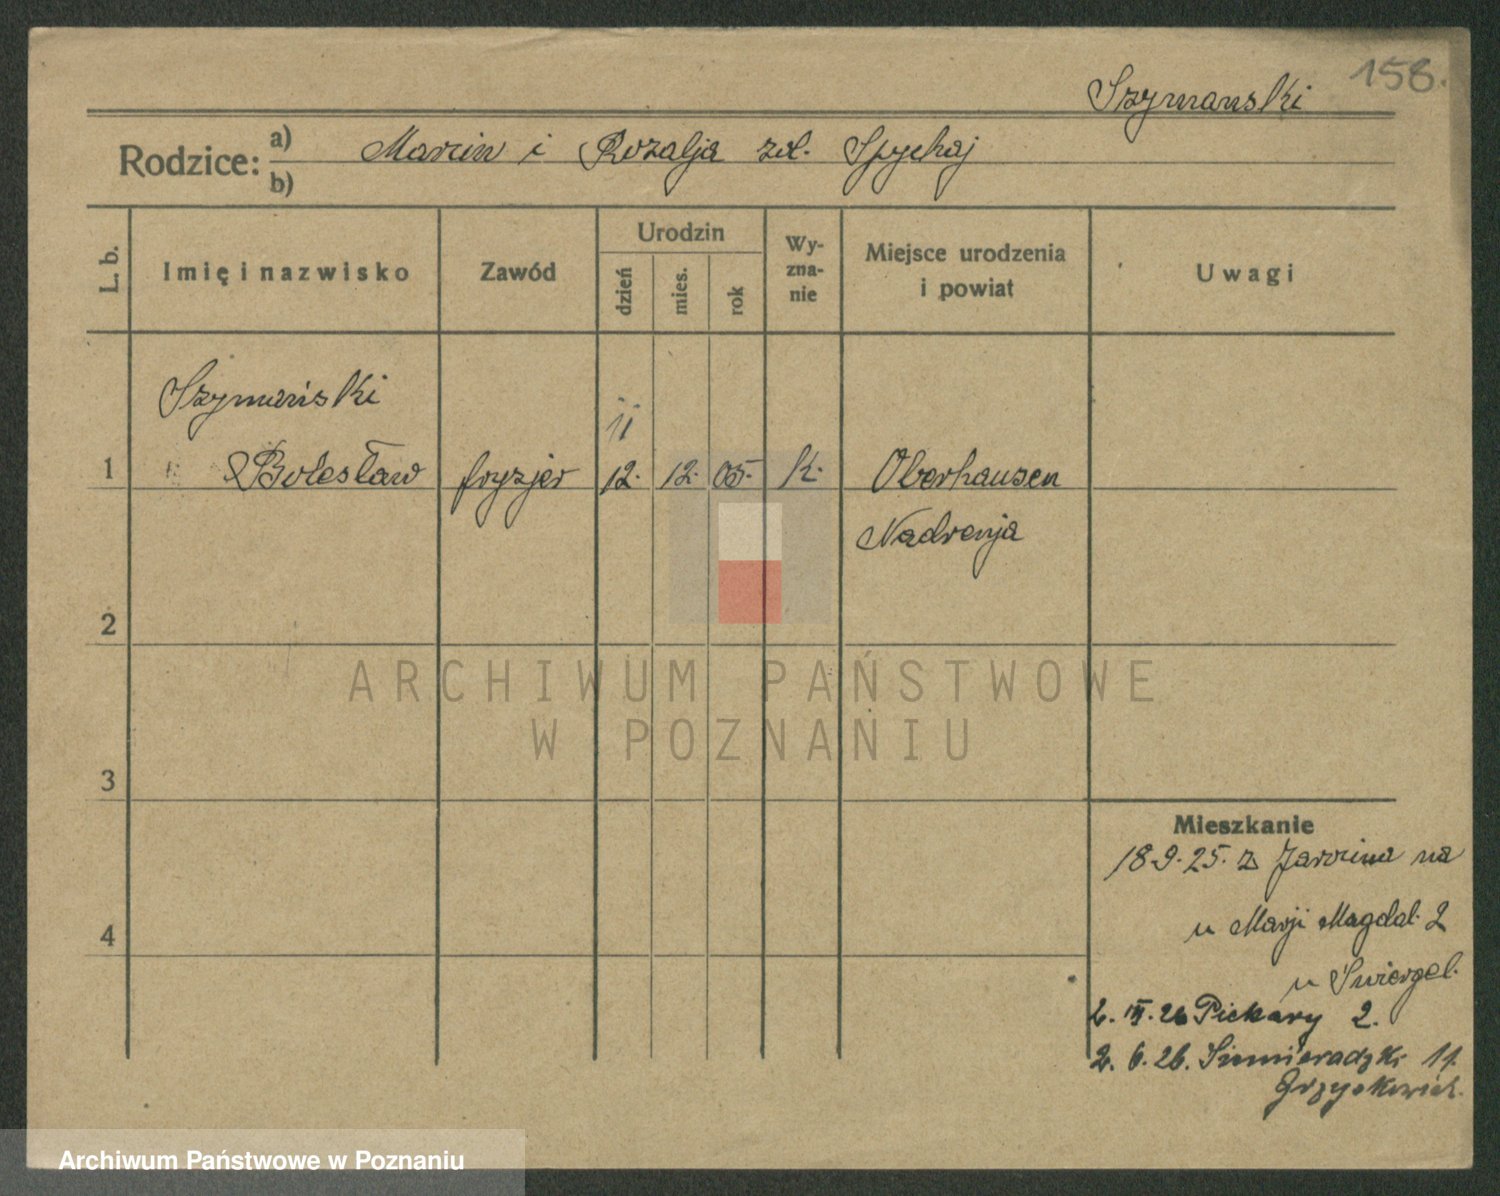 158.
Szymanski
Rodzice: a) Marcin i Rozalja zd. Spychaj
b)
L. b. Imię i nazwisko Zawód Urodzin dzień mies. rok Wy-zna-nie Miejsce urodzenia i powiat Uwagi
Szymański
11
1 Bolesław fryzjer 12. 12. 05. K. Oberhausen
Nadrenja
2
ARCHIWUM PAŃSTWOWE
W POZNANIU
3
Mieszkanie
18.9.25. z Jarocina na
u Marji Magdal. 2
4
u Świergel.
2. III. 26 Piekary 2.
2. 6. 26. Siemieradzki 11.
Archiwum Państwowe w Poznaniu